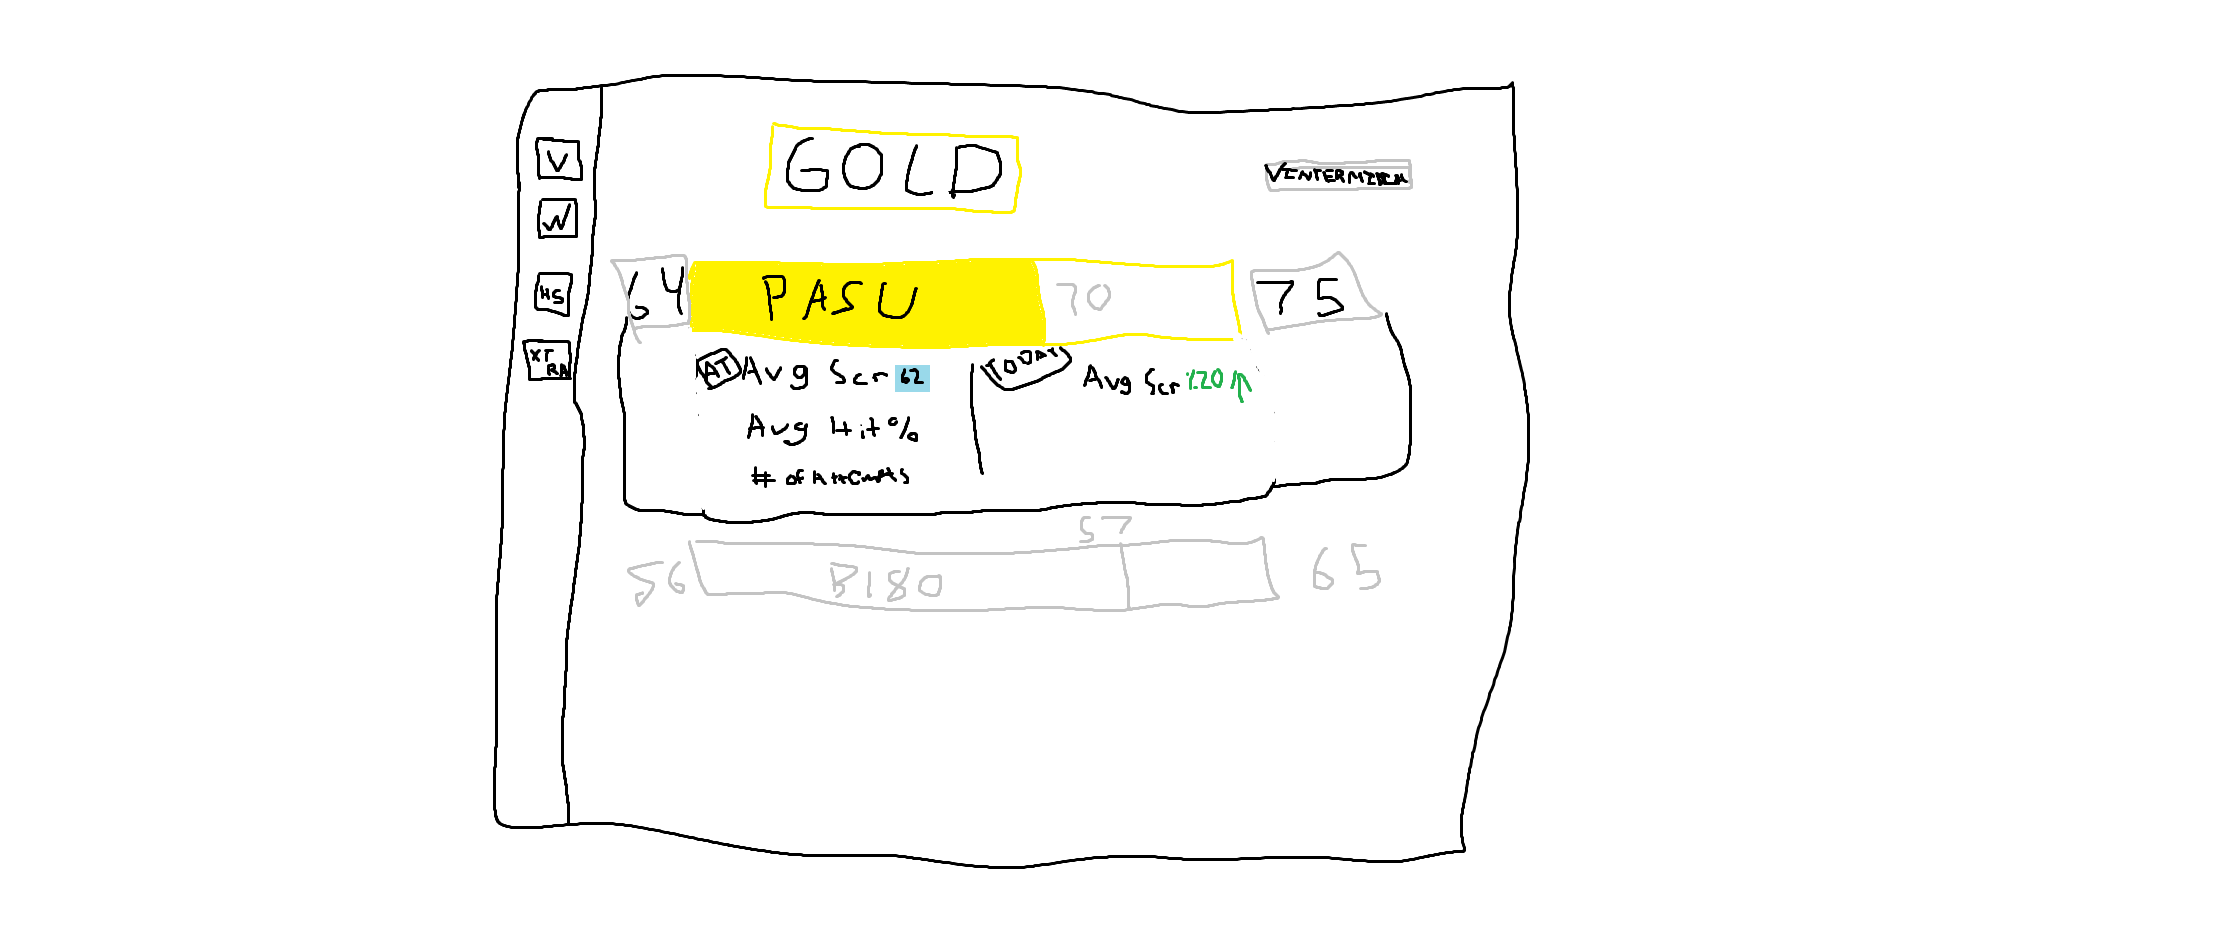 V
W
HS
XT
RA
GOLD
64 PASU 70 75
AT Avg Scr 62
Avg Hit%
# of Attempts
TODAY Avg Scr %20 ↑
57
56 B180 65